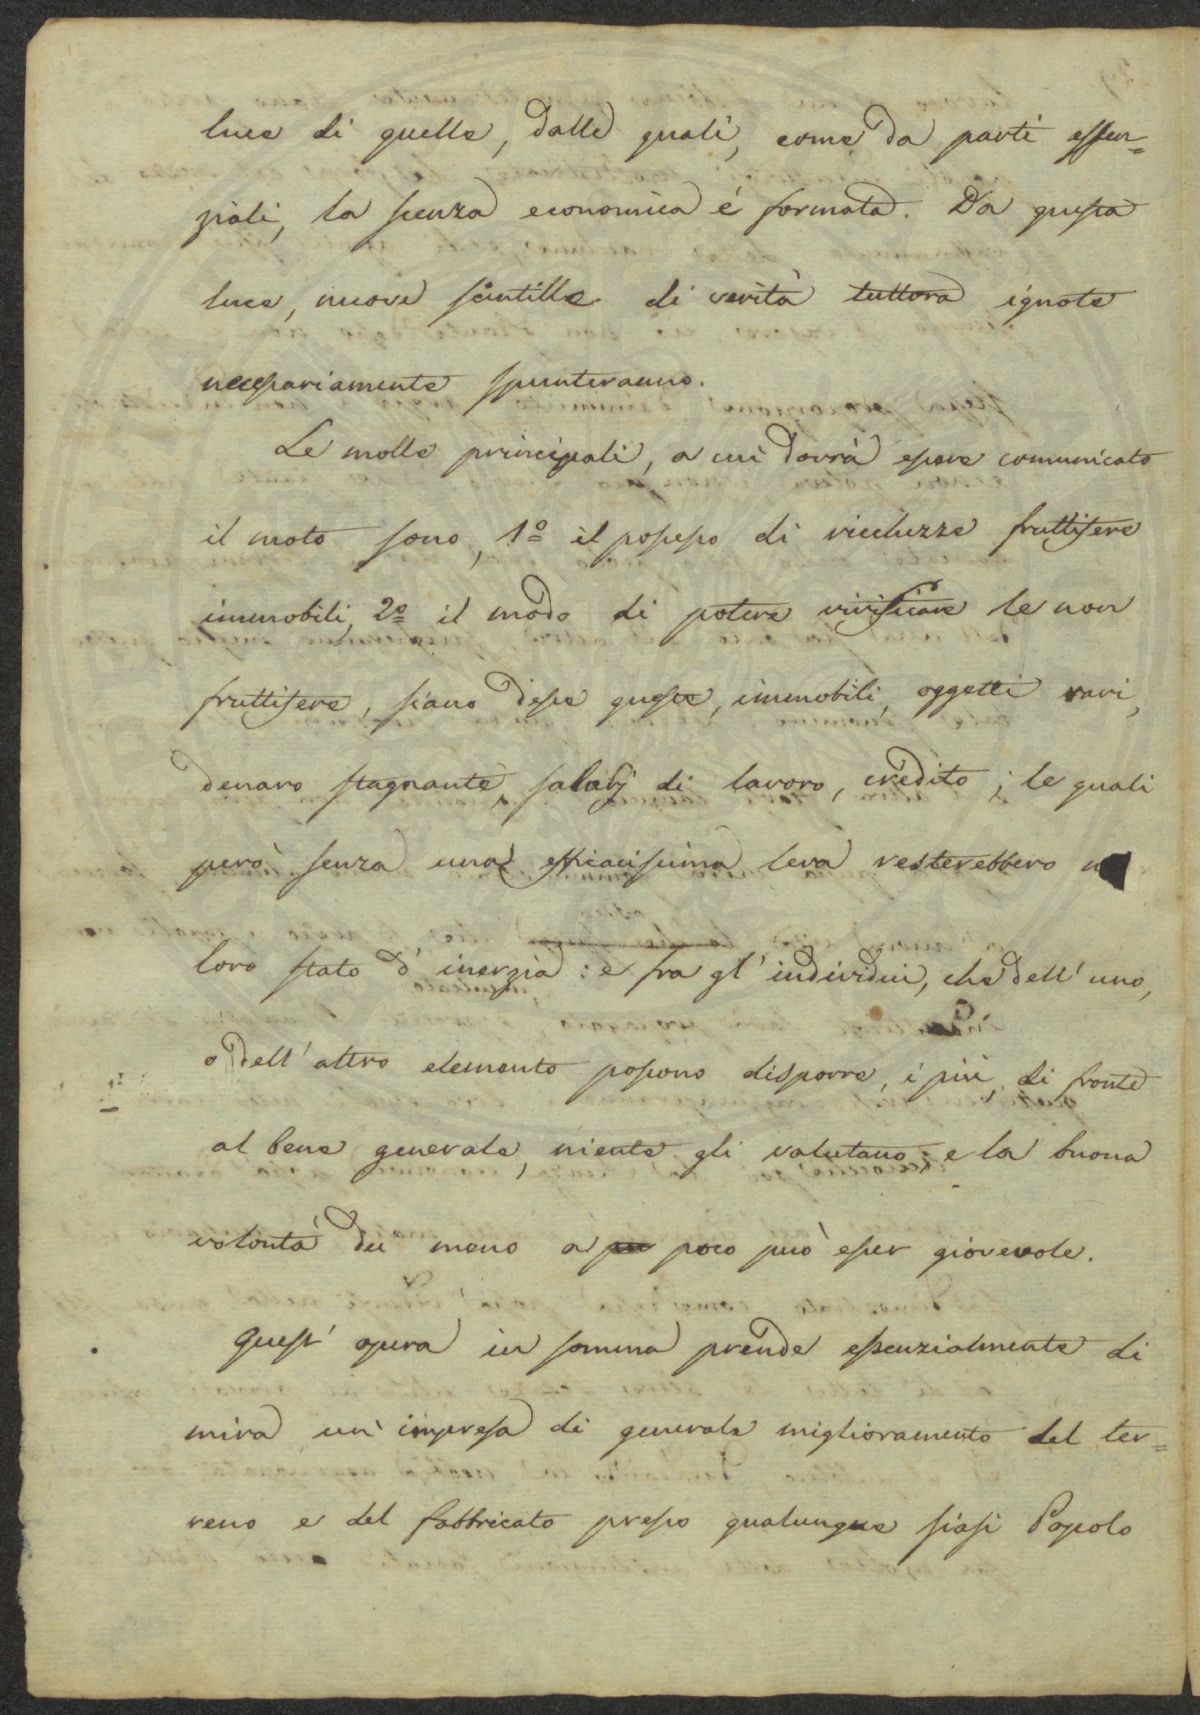 luce di quelle, dalle quali, come da parti essen=
ziali, la scenza economica é formata. Da questa
luce, nuove scintille di verità tuttora ignote
necessariamente spunteranno.
Le molle principali, a cui dovrà essere comunicato
il moto sono, 1º il possesso di ricchezze fruttifere
immobili, 2º il modo di potere vivificare le non
fruttifere, siano desse queste, immobili, oggetti rari,
denaro stagnante, di lavoro, credito; le quali
però senza una efficacissima leva resterebbero
loro stato d'inerzia: e fra gl'individui, che dell'uno,
o dell'altro elemento possono disporre, i più, di fronte
al bene generale, niente gli valutano; e la buona
volontà dei meno a poco può esser giovevole.
Quest'opera in somma prende essenzialmente di
mira un'impresa di generale miglioramento del ter=
reno e del fabbricato presso qualunque siasi Popolo